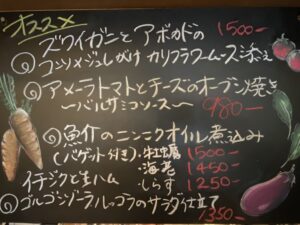 オススメ
◎ズワイガニとアボカドの 1500-
コンソメジュレがけ カリフラワームース添え
◎アメーラトマトとチーズのオーブン焼き
～バルサミコソース～ 980-
◎魚介のニンニクオイル煮込み
(バゲット付き)・牡蠣 1500-
・海老 1450-
・しらす 1250-
イチジクと生ハム
◎ゴルゴンゾーラ、ルッコラのサラダ仕立て
1350-